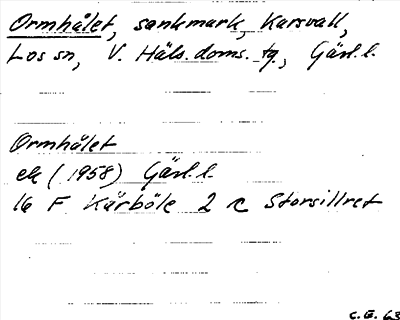 Ormhålet, sankmark, Karsvall,
Los sn, V. Häls. doms. tg, Gävl. l.
Ormhålet
ek (1958) Gävl. l.
16 F Kårböle 2 c Storsillret
C.E. 63